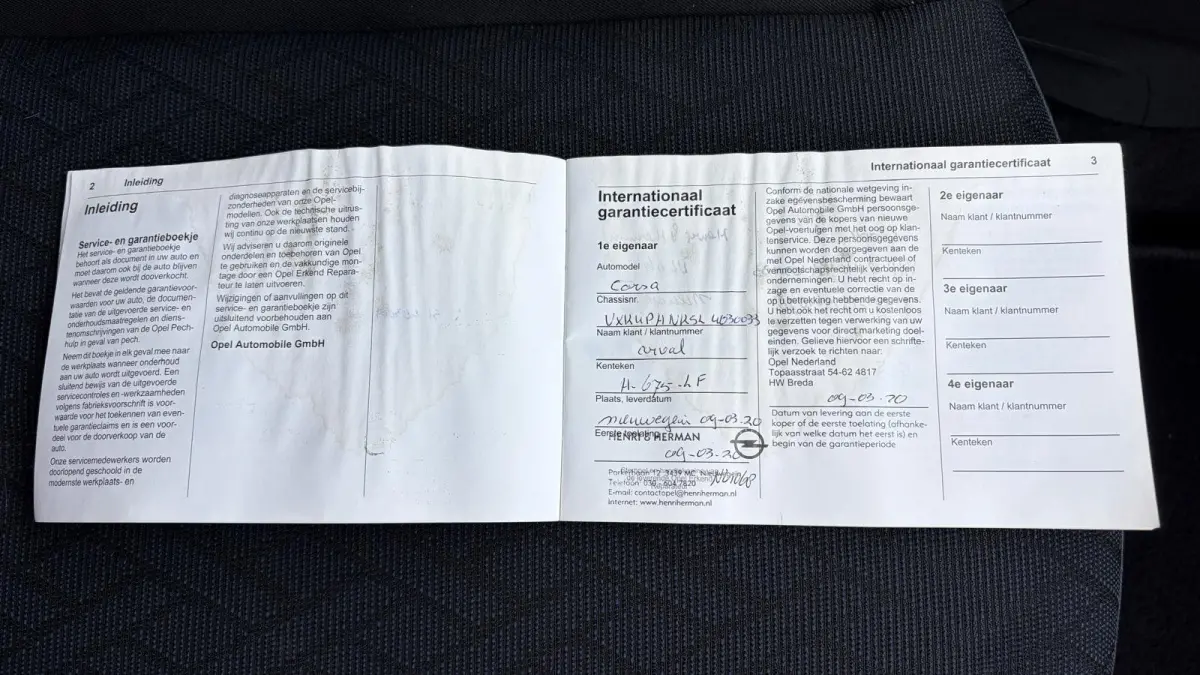 2 Inleiding
Inleiding
Service- en garantieboekje
Het service- en garantieboekje
behoort als document in uw auto en
moet daarom ook bij de auto blijven
wanneer deze wordt doorverkocht.
Het bevat de geldende garantievoor-
waarden voor uw auto, de documen-
tatie van de uitgevoerde service- en
onderhoudsmaatregelen en diens-
tenomschrijvingen van de Opel Pech-
hulp in geval van pech.
Neem dit boekje in elk geval mee naar
de werkplaats wanneer onderhoud
aan uw auto wordt uitgevoerd. Een
sluitend bewijs van de uitgevoerde
servicecontroles en -werkzaamheden
volgens fabrieksvoorschrift is voor-
waarde voor het toekennen van even-
tuele garantieclaims en is een voor-
deel voor de doorverkoop van de
auto.
Onze servicemedewerkers worden
doorlopend geschoold in de
modernste werkplaats- en
diagnoseapparaten en de servicebij-
zonderheden van onze Opel-
modellen. Ook de technische uitrus-
ting van onze werkplaatsen houden
wij continu op de nieuwste stand.
Wij adviseren u daarom originele
onderdelen en toebehoren van Opel
te gebruiken en de vakkundige mon-
tage door een Opel Erkend Repara-
teur te laten uitvoeren.
Wijzigingen of aanvullingen op dit
service- en garantieboekje zijn
uitsluitend voorbehouden aan
Opel Automobile GmbH.
Opel Automobile GmbH
Internationaal garantiecertificaat 3
Internationaal
garantiecertificaat
1e eigenaar
Automodel
Corsa
Chassisnr.
Naam klant / klantnummer
arval
Kenteken
H-675-LF
Plaats, leverdatum
nieuwegein 09-03-20
Eerste toelating
HENRI & HERMAN
09-03-20
Telefoon: 030 - 604 7820
E-mail: contactopel@henriherman.nl
Internet: www.henriherman.nl
Conform de nationale wetgeving in-
zake egevensbescherming bewaart
Opel Automobile GmbH persoonsge-
gevens van de kopers van nieuwe
Opel-voertuigen met het oog op klan-
tenservice. Deze persoonsgegevens
kunnen worden doorgegeven aan de
met Opel Nederland contractueel of
vennootschapsrechtelijk verbonden
ondernemingen. U hebt recht op in-
zage en eventuele correctie van de
op u betrekking hebbende gegevens.
U hebt ook het recht om u kosteloos
te verzetten tegen verwerking van uw
gegevens voor direct marketing doel-
einden. Gelieve hiervoor een schrifte-
lijk verzoek te richten naar:
Opel Nederland
Topaasstraat 54-62 4817
HW Breda
09-03-20
Datum van levering aan de eerste
koper of de eerste toelating (afhanke-
lijk van welke datum het eerst is) en
begin van de garantieperiode
2e eigenaar
Naam klant / klantnummer
Kenteken
3e eigenaar
Naam klant / klantnummer
Kenteken
4e eigenaar
Naam klant / klantnummer
Kenteken